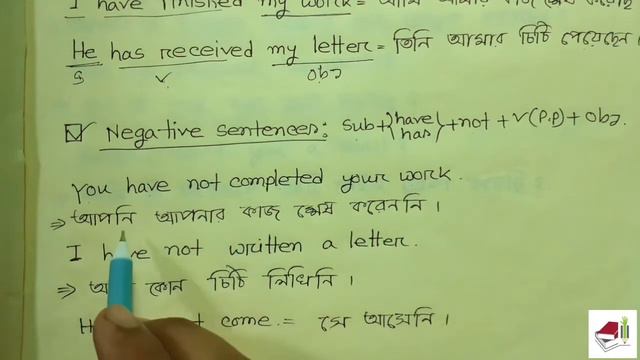 I have finished my work = আমি আমার কাজ শেষ করেছি
He has received my letter = তিনি আমার চিঠি পেয়েছেন।
S V Obj
Negative sentences: sub+{have has}+not+V(P.P)+Obj.
You have not completed your work.
⇒ আপনি আপনার কাজ শেষ করেননি।
I have not written a letter.
⇒ কোন চিঠি লিখিনি।
come = সে আসেনি।